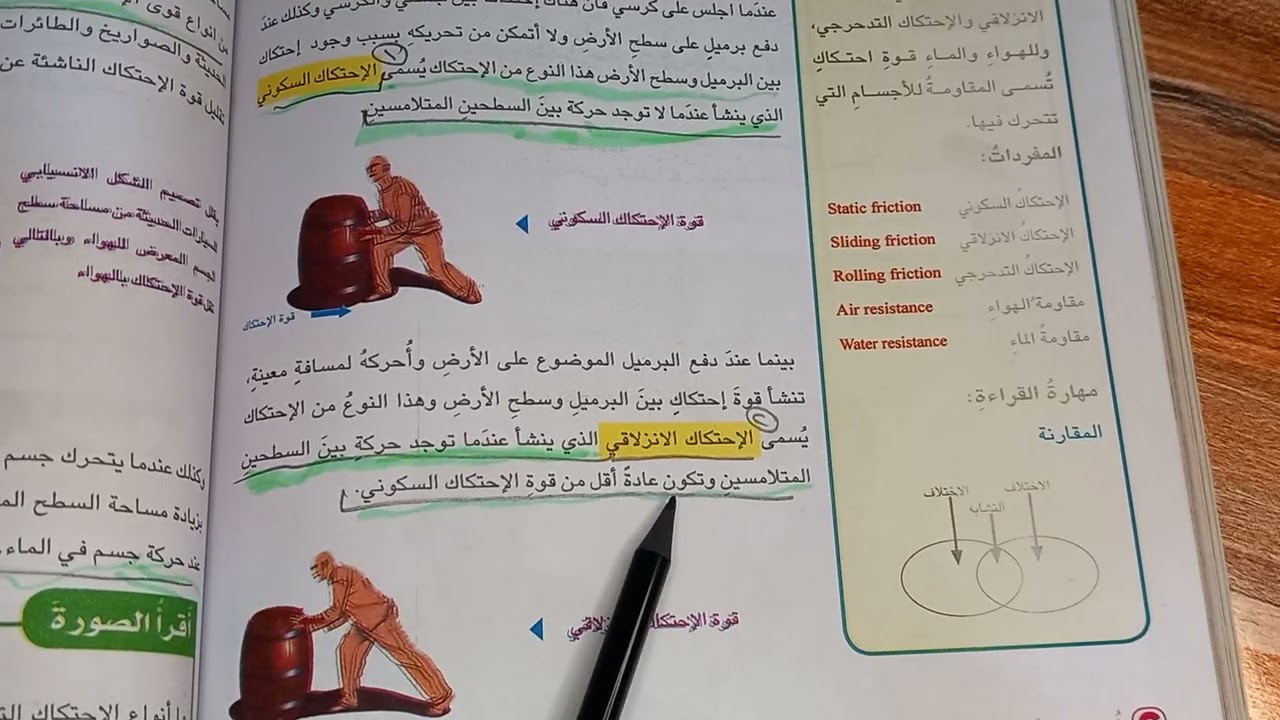 الانزلاقي والإحتكاك التدحرجي،
وللهواءِ والماءِ قوةِ احتكاكِ
تُسمى المقاومةُ للأجسامِ التي
تتحرك فيها.
المفرداتُ:
الإحتكاكُ السكوني Static friction
الإحتكاكُ الانزلاقي Sliding friction
الإحتكاكُ التدحرجي Rolling friction
مقاومةُ الهواءِ Air resistance
مقاومةُ الماءِ Water resistance
مهارةُ القراءةِ:
المقارنة
الاختلاف
التشابه
الاختلاف
عندَما اجلس على كرسي فأن هناك إحتكاك بين جسمي والكرسي وكذلك عندَ
دفع برميلٍ على سطحِ الأرضِ ولا أتمكن من تحريكهِ بسببِ وجود إحتكاك
بين البرميل وسطح الأرض هذا النوع من الإحتكاك يُسمى الإحتكاك السكوني
١
الذي ينشأ عندَما لا توجد حركة بينَ السطحينِ المتلامسينِ
قوة الإحتكاك السكوني
قوة الإحتكاك
بينما عندَ دفع البرميل الموضوع على الأرضِ وأُحركهُ لمسافةٍ معينةٍ،
تنشأ قوةَ إحتكاكٍ بينَ البرميلِ وسطحِ الأرضِ وهذا النوعُ من الإحتكاك
٢
يُسمى الإحتكاك الانزلاقي الذي ينشأ عندَما توجد حركةِ بينَ السطحينِ
المتلامسينِ وتكون عادةً أقل من قوةِ الإحتكاك السكوني.
قوة
من انواع قوى
الحديثة والصواريخ والطائرات
تقليل قوة الإحتكاك الناشئة عن
يقلل تصميم الشكل الانسيابي
للسيارات الحديثة من مساحة سطح
الجسم المعرض للهواء وبالتالي
تقل قوة الإحتكاك بالهواء
وكذلك عندما يتحرك جسم
بزيادة مساحة السطح
عند حركة جسم في الماء.
أقرأُ الصورةَ
أنواع الإحتكاك